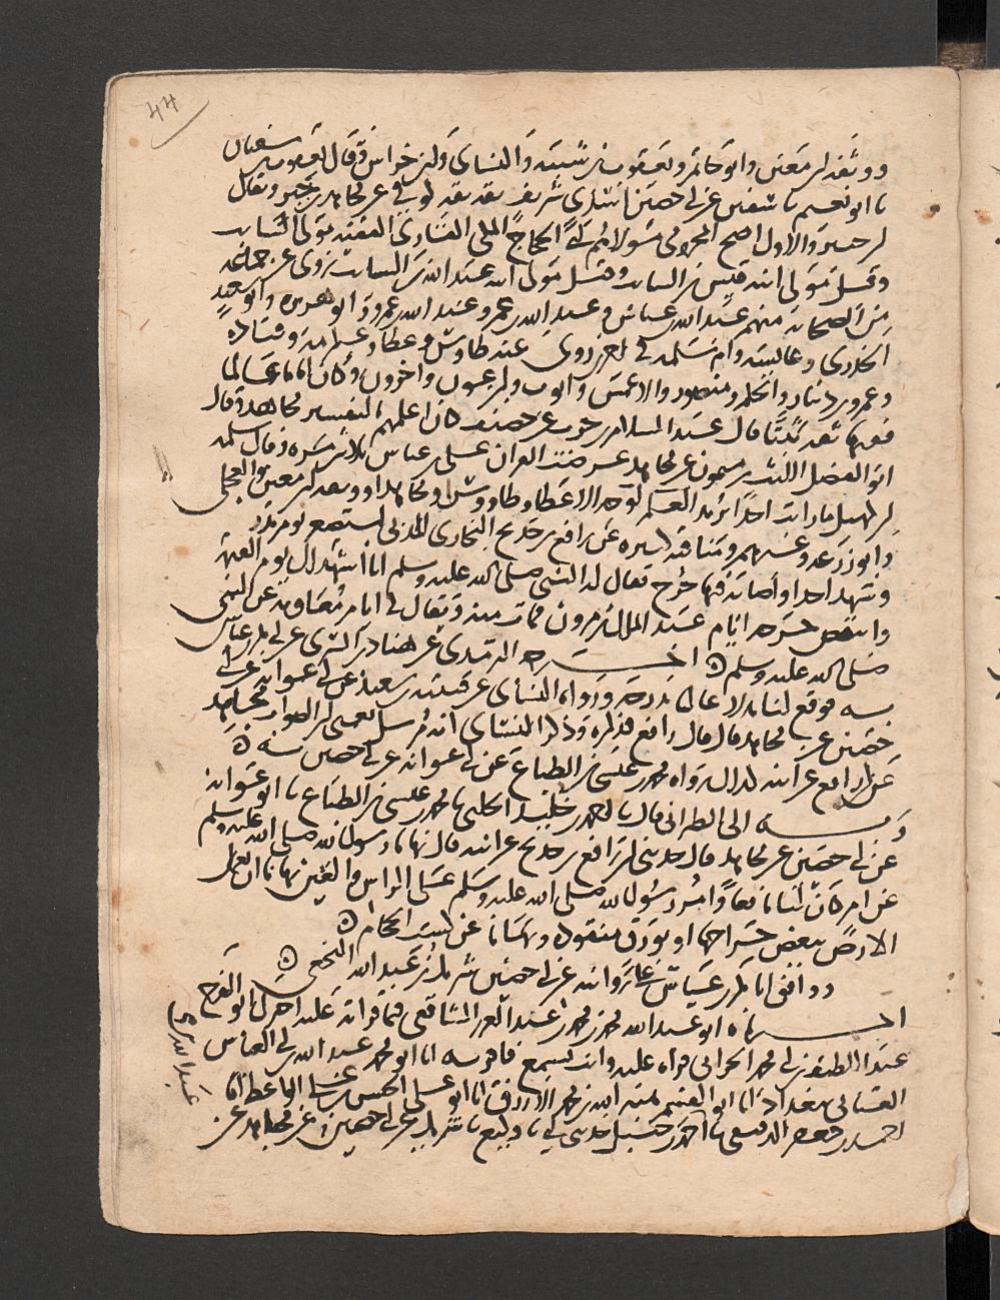 ٤٤
ووثقه ابن معين وابو حاتم ويعقوب بن شيبة والنسائي وابن خراش وقال يعقوب بن سفيان
نا ابو نعيم نا سفين عن ابي حصين اسدي شريف ثقة ثقة كوفي عن مجاهد بن جبر ويقال
ابن جبير والاول اصح المخزومي مولاهم ابي الحجاج المكي القاري الفقيه مولى السائب
وقيل مولى ابنه قيس بن السائب وقيل مولى ابنه عبد الله بن السائب روى عن جماعة
من الصحابة منهم عبد الله بن عباس وعبد الله بن عمر وعبد الله بن عمرو وابو هريرة وابو سعيد
الخدري وعائشة وام سلمة في اخرين روى عنه طاوس وعطاء وعكرمة وقتادة
وعمرو بن دينار والحكم ومنصور والاعمش وايوب وابن عون واخرون وكان اماما عالما
فقيها ثقة ثبتا قال عبد السلام بن حرب عن خصيف كان اعلمهم بالتفسير مجاهد وقال
ابو الفضل الليث بن ميمون عن مجاهد عرضت القران على بن عباس ثلاثين مرة وقال سلمة
ابن كهيل ما رايت احدا يريد بالعلم وجه الله الا عطاء وطاووس ومجاهدا ووثقه ابن معين والعجلي
وابو زرعة وغيرهم ومناقبه كثيرة عن رافع بن خديج النجاري المدني استصغر يوم بدر
وشهد احدا واصابته فيها جرح فقال له النبي صلى الله عليه وسلم انا اشهد لك يوم القيمة
وانتقض جرحه ايام عبد الملك بن مرون فمات منه ويقال في ايام معاوية عن النبي
صلى الله عليه وسلم ه اخرجه الترمذي عن هناد بن السري عن ابي بكر بن عياش
به فوقع لنا بدلا عاليا بدرجة ورواه النسائي عن قتيبة بن سعيد عن ابي عوانة عن ابي
حصين عن مجاهد قال قال رافع فذكره وذكر النسائي انه مرسل يعني ان الصواب مجاهد
عن ابن رافع عن ابيه كذلك رواه محمد بن عيسى بن الطباع عن ابي عوانة عن ابي حصين بسنده ه
وبه الى الطبراني قال نا احمد بن خليد الحلبي نا محمد بن عيسى بن الطباع نا ابو عوانة
عن ابي حصين عن مجاهد قال حدثني ابن رافع بن خديج عن ابيه قال نهانا رسول الله صلى الله عليه وسلم
عن امر كان لنا نافعا وامر رسول الله صلى الله عليه وسلم على الراس والعين نهانا ان نتقبل
الارض ببعض خراجها او بورق منقودة ونهانا عن كسب الحجام ه
ووافق ابا بكر بن عياش على روايته عن ابي حصين شريك بن عبد الله النخعي ه
اخبرناه ابو عبد الله محمد بن محمد بن عبد العزيز الشافعي فيما قراته عليه اخبرك ابو الفرج
عبد اللطيف بن ابي محمد الحراني قراه عليه وانت تسمع فاقر به انا ابو محمد عبد الله بن ابي العباس
القباني ببغداد انا ابو القسم هبة الله بن محمد الازرق انا ابو علي الحسن بن علي الواعظ انا
احمد بن جعفر القطيعي نا عبد الله بن احمد بن حنبل حدثني ابي نا وكيع نا شريك عن ابي حصين عن مجاهد عن